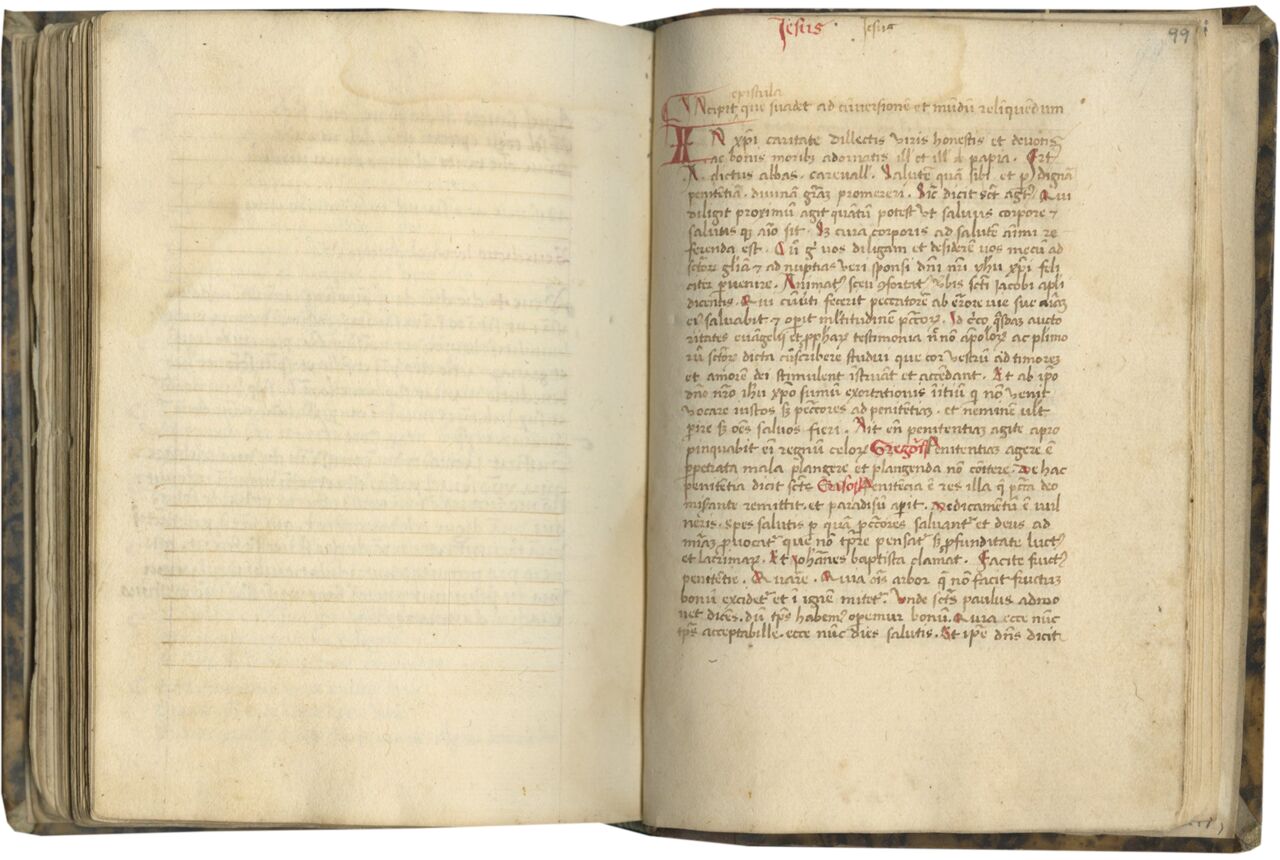 Jesus Jesus
99
epistula
Incipit que suadet ad cūversionē et mūdū relīquēdum
IN xp̄i caritate dillectis viris honestis et devotis
ac bonis moribꝫ adornatis ill et ill d papia.
dictus abbas. careuall. Salutē quā sibi et p dignā
penitētiā. divinā grā̄z promereri. Sic̄ dicit sct̄ Qui
diligit proximū agit quātū potest ut salvus corpore ⁊
salvus aīo sit. Sꝫ cura corporis ad salutē animi re
ferenda est. Cū gͦ vos diligam et desiderē vos mecū ad
sctōꝝ gl̄iā ⁊ ad nuptias veri sponsi dn̄i nr̄i yh̄u xp̄i feli
citer pvenire. Animatꝰ ꝯfortatꝰ ūbis sctī Iacobi apl̄i
dicentis. Qui fecerit peccatorē ab errore vie sue aīaꝫ
eiꝰ salvabit ⁊ opit ml̄titudinem pctōꝝ. Id cͦco aucto
ritates evāngelij et ꝓphaꝝ testimonia nͨnō apl̄oꝝ ac plimo
rū sctōꝝ dicta cūscribere studui que cor vestrū ad timoreꝫ
et amorē dei stimulent īstruāt et accēdant. Et ab ip̄o
dn̄o nr̄o ih̄u xp̄o sumū exortationis īitiū q̄ nō venit
vocare iustos sꝫ pctōres ad penitētiaꝫ. et neminē vult
pire sꝫ oēs salvos fieri. Ait en̄ penitentiaꝫ agite apro
pinquabit en̄ regnū celoꝝ Gregoriꝰ Penitentiaꝫ agere ē
ꝑpetrata mala plangere et plangenda nō cōitere. De hac
penitētia dicit sctꝰ Crisosꝰ Penitēcia ē res illa q̄ pctā deo
misante remittit. et paradisū apit. Medicamētū ē vul
neris. spes salutis p quā pctōres salvantꝰ et deus ad
mīaꝫ ꝓvocatꝰ que nō tp̄re pensatꝰ sꝫ ꝓfunditate luctꝰ
et lacrimaꝝ. Et Iohānes baptista clamat. Facite fructꝰ
penitētie. Quare. Quia oīs arbor q̄ nō facit fructum
bonū excidetꝰ et ī ignē mitetꝰ. Unde sctꝰ paulus admo
net dicēs. dū tp̄s habemꝰ opemur bonū. Quia ecce nūc
tp̄s acceptabille. ecce nūc dies salutis. Et ip̄e dn̄s dicit